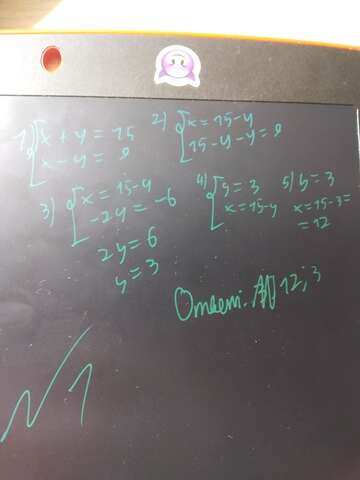 1) { x + y = 15
x - y = 9
2) { x = 15 - y
15 - y - y = 9
3) { x = 15 - y
-2y = -6
2y = 6
y = 3
4) { y = 3
x = 15 - y
5) y = 3
x = 15 - 3 =
= 12
Ответ: 12; 3
№ 1